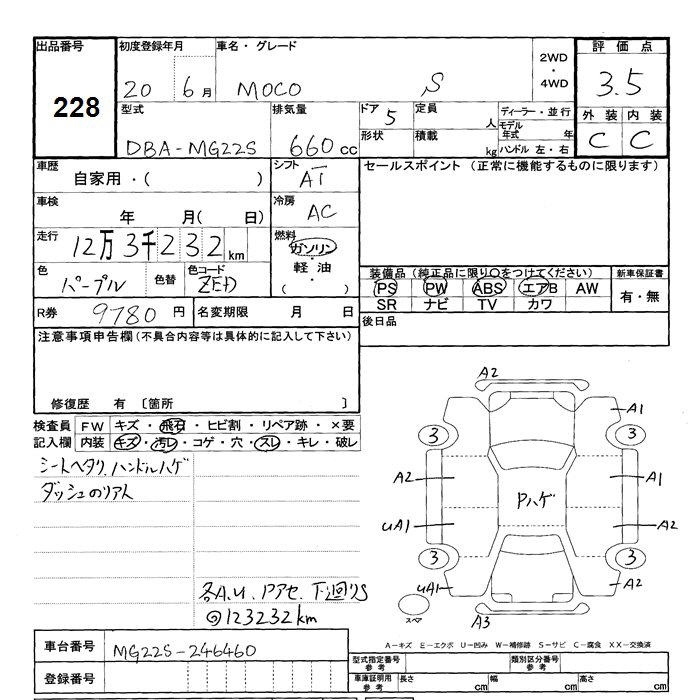 出品番号 初度登録年月 車名・グレード 2WD・4WD 評価点
228 20 6月 MOCO S 3.5
型式 排気量 ドア 5 定員 人 ディーラー・並行 外装 内装
DBA-MG22S 660cc 形状 積載 kg モデル年式 年 ハンドル 左・右 C C
車歴 シフト セールスポイント(正常に機能するものに限ります)
自家用・( ) AT
車検 冷房
年 月( 日) AC
走行 燃料
12万3千232km ガソリン・軽油
( )
色 色替 色コード 装備品(純正品に限り○をつけてください) 新車保証書
パープル ZED PS PW ABS エアB AW 有・無
SR ナビ TV カワ
R券 9780円 名変期限 月 日 後日品
注意事項申告欄(不具合内容等は具体的に記入して下さい)
修復歴 有 〔箇所 〕
検査員 FW キズ・飛石・ヒビ割・リペア跡・×要
記入欄 内装 キズ・汚レ・コゲ・穴・スレ・キレ・破レ
シートヘタリ、ハンドルハゲ
各A.U、Pアセ、下廻りS
@123232km
A2
A1
3 3
A2 Pハゲ A1
UA1 A2
3 3
UA1 A2
スペア A3
A-キズ E-エクボ U-凹み W-補修跡 S-サビ C-腐食 XX-交換済
車台番号 MG22S-246460
登録番号
型式指定番号 参考 類別区分番号 参考
車庫証明用 参考 長さ cm 幅 cm 高さ cm